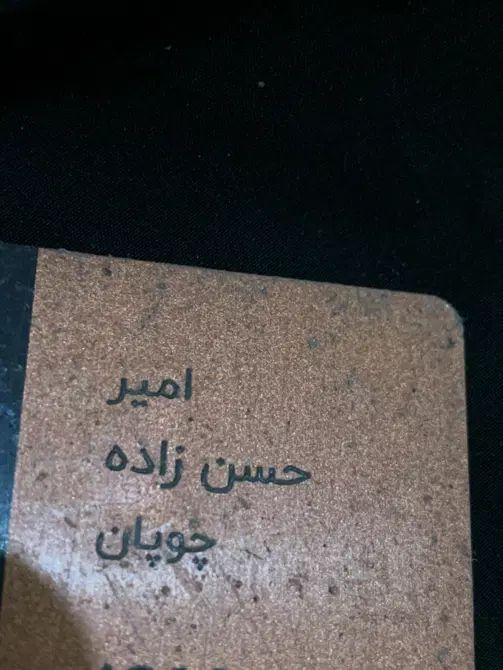 امیر
حسن زاده
چوپان